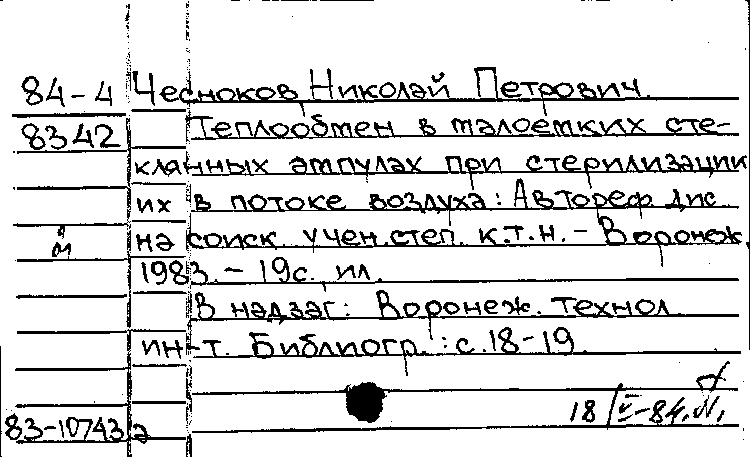 84-4 Чесноков, Николай Петрович.
8342 Теплообмен в малоемких сте-
клянных ампулах при стерилизации
их в потоке воздуха: Автореф. дис.
на соиск. учен. степ. к.т.н. - Воронеж,
1983. - 19с., ил.
В надзаг: Воронеж. технол.
ин-т. Библиогр.: с.18-19.
83-10743